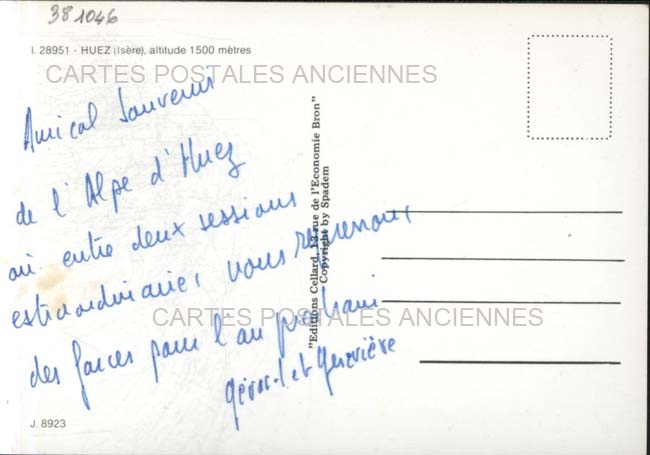 381046
I. 28951 - HUEZ (Isère), altitude 1500 mètres
CARTES POSTALES ANCIENNES
Amical souvenir
de l'Alpe d'Huez
où entre deux sessions
extraordinaires nous reprenons
des forces pour l'an prochain
Gérard et Geneviève
CARTES POSTALES ANCIENNES
"Editions Cellard, 13 rue de l'Economie Bron"
Copyright by Spadem
J. 8923